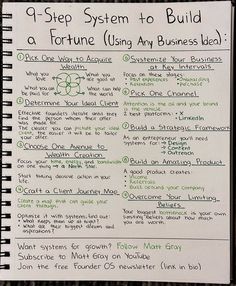 9-Step System to Build
a Fortune (Using Any Business Idea):
① Pick One Way to Acquire Wealth
What you love
What you're good at
What you can be paid for
What the world needs
② Determine Your Ideal Client
Effective founders decide who they
find the person whose life
The clearer you can picture your ideal
client, the easier it will be to help
your
③ Choose One Avenue to Wealth Creation
Focus your time, energy and
on one thing → a North Star
Start taking decisive action in your
life.
④ Craft a Client Journey Map
Create a map that can guide your
client through
Optimize it with systems, find out:
• What keeps them up at night?
• What are their biggest dreams and
aspirations?
⑤ Systemize Your Business
at Key Intervals
Focus on these stages:
• Past experiences
• Awareness
• Purchasing
• Retention
• Purchase
⑥ Pick One Channel
Attention is the oil and your brand
is the vehicle.
2 best platforms: • X
• LinkedIn
⑦ Build a Strategic Framework
As an entrepreneur you'll need
Systems for:
• Design
• Content
• Outreach
⑧ Build an Amazing Product
A good product creates:
• Income
• Referrals
• Buzz around your company
⑨ Overcome Your Limiting
Beliefs
Your biggest bottleneck is your own
limiting beliefs about how much
Want systems for growth? Follow Matt Gray
Subscribe to Matt Gray on YouTube
Join the free Founder OS newsletter (link in bio)